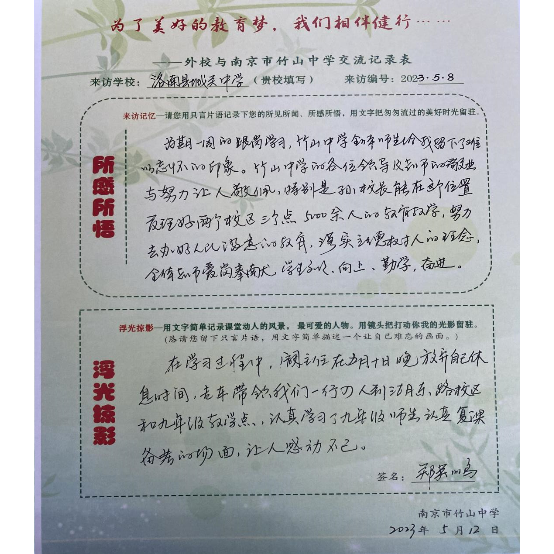 为了美好的教育梦,我们相伴健行……
——外校与南京市竹山中学交流记录表
来访学校:洛南县城关中学(贵校填写) 来访编号:2023.5.8
来访记忆—请您用只言片语记录下您的所见所闻、所感所悟,用文字把匆匆流过的美好时光留驻。
所感所悟
为期一周的跟岗学习,竹山中学全体师生给我留下了难
以忘怀的印象。竹山中学的各位领导及教师的敬业
与努力让人敬佩,特别是 校长能在这个位置
管理好两个校区三个点5000余人的教育教学,努力
去办好人民满意的教育,落实立德树人的理念,
全体教师爱岗奉献,学生 、向上、勤学,奋进。
浮光掠影—用文字简单记录课堂动人的风景,最可爱的人物。用镜头把打动你我的光影留驻。
(落请您留下只言片语,用文字简单描述一个让自己难忘的画面。)
浮光掠影
在学习过程中, 主任在五月十日晚放弃自己休
息时间,走车带领我们一行四人到 路校区
和九年级教学点,认真学习了九年级师生认真复课
备考的场面,让人感动不已。
签名:
南京市竹山中学
2023年5月12日